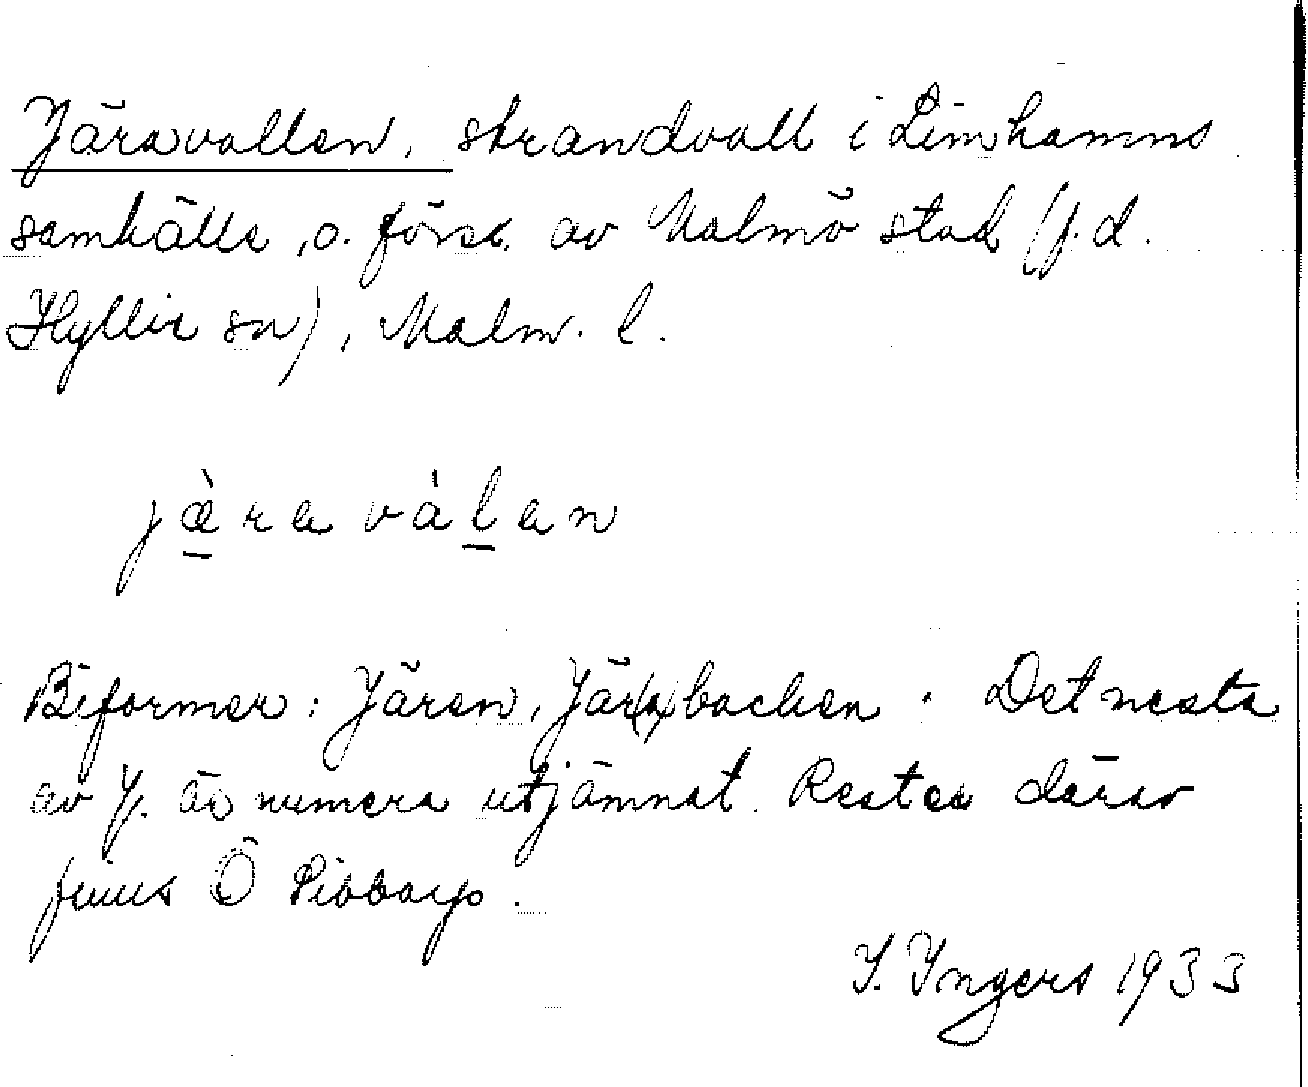 Järavallen, strandvall i Limhamns
samhälle, o. förs. av Malmö stad (f.d.
Hyllie sn), Malm. l.
jæ̀ra vàlan
Biformer: Jären, Jär(a)backen. Det mesta
av J. är numera utjämnat. Rester därav
finns Ö Sibbarp.
I. Ingers 1933